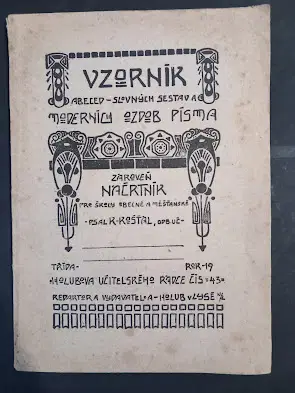 VZORNÍK
ABECED – SLOVNÝCH SESTAV A
MODERNÍCH OZDOB PÍSMA
ZÁROVEŇ
NÁČRTNÍK
PRO ŠKOLY OBECNÉ A MĚŠŤANSKÉ
- PSAL K. KOŠŤÁL, ODB. UČ -
TŘÍDA - ROK - 19
HOLUBOVA UČITELSKÉHO RÁDCE ČÍS = 43 =
REDAKTOR A VYDAVATEL = A - HOLUB V LYSÉ N/L